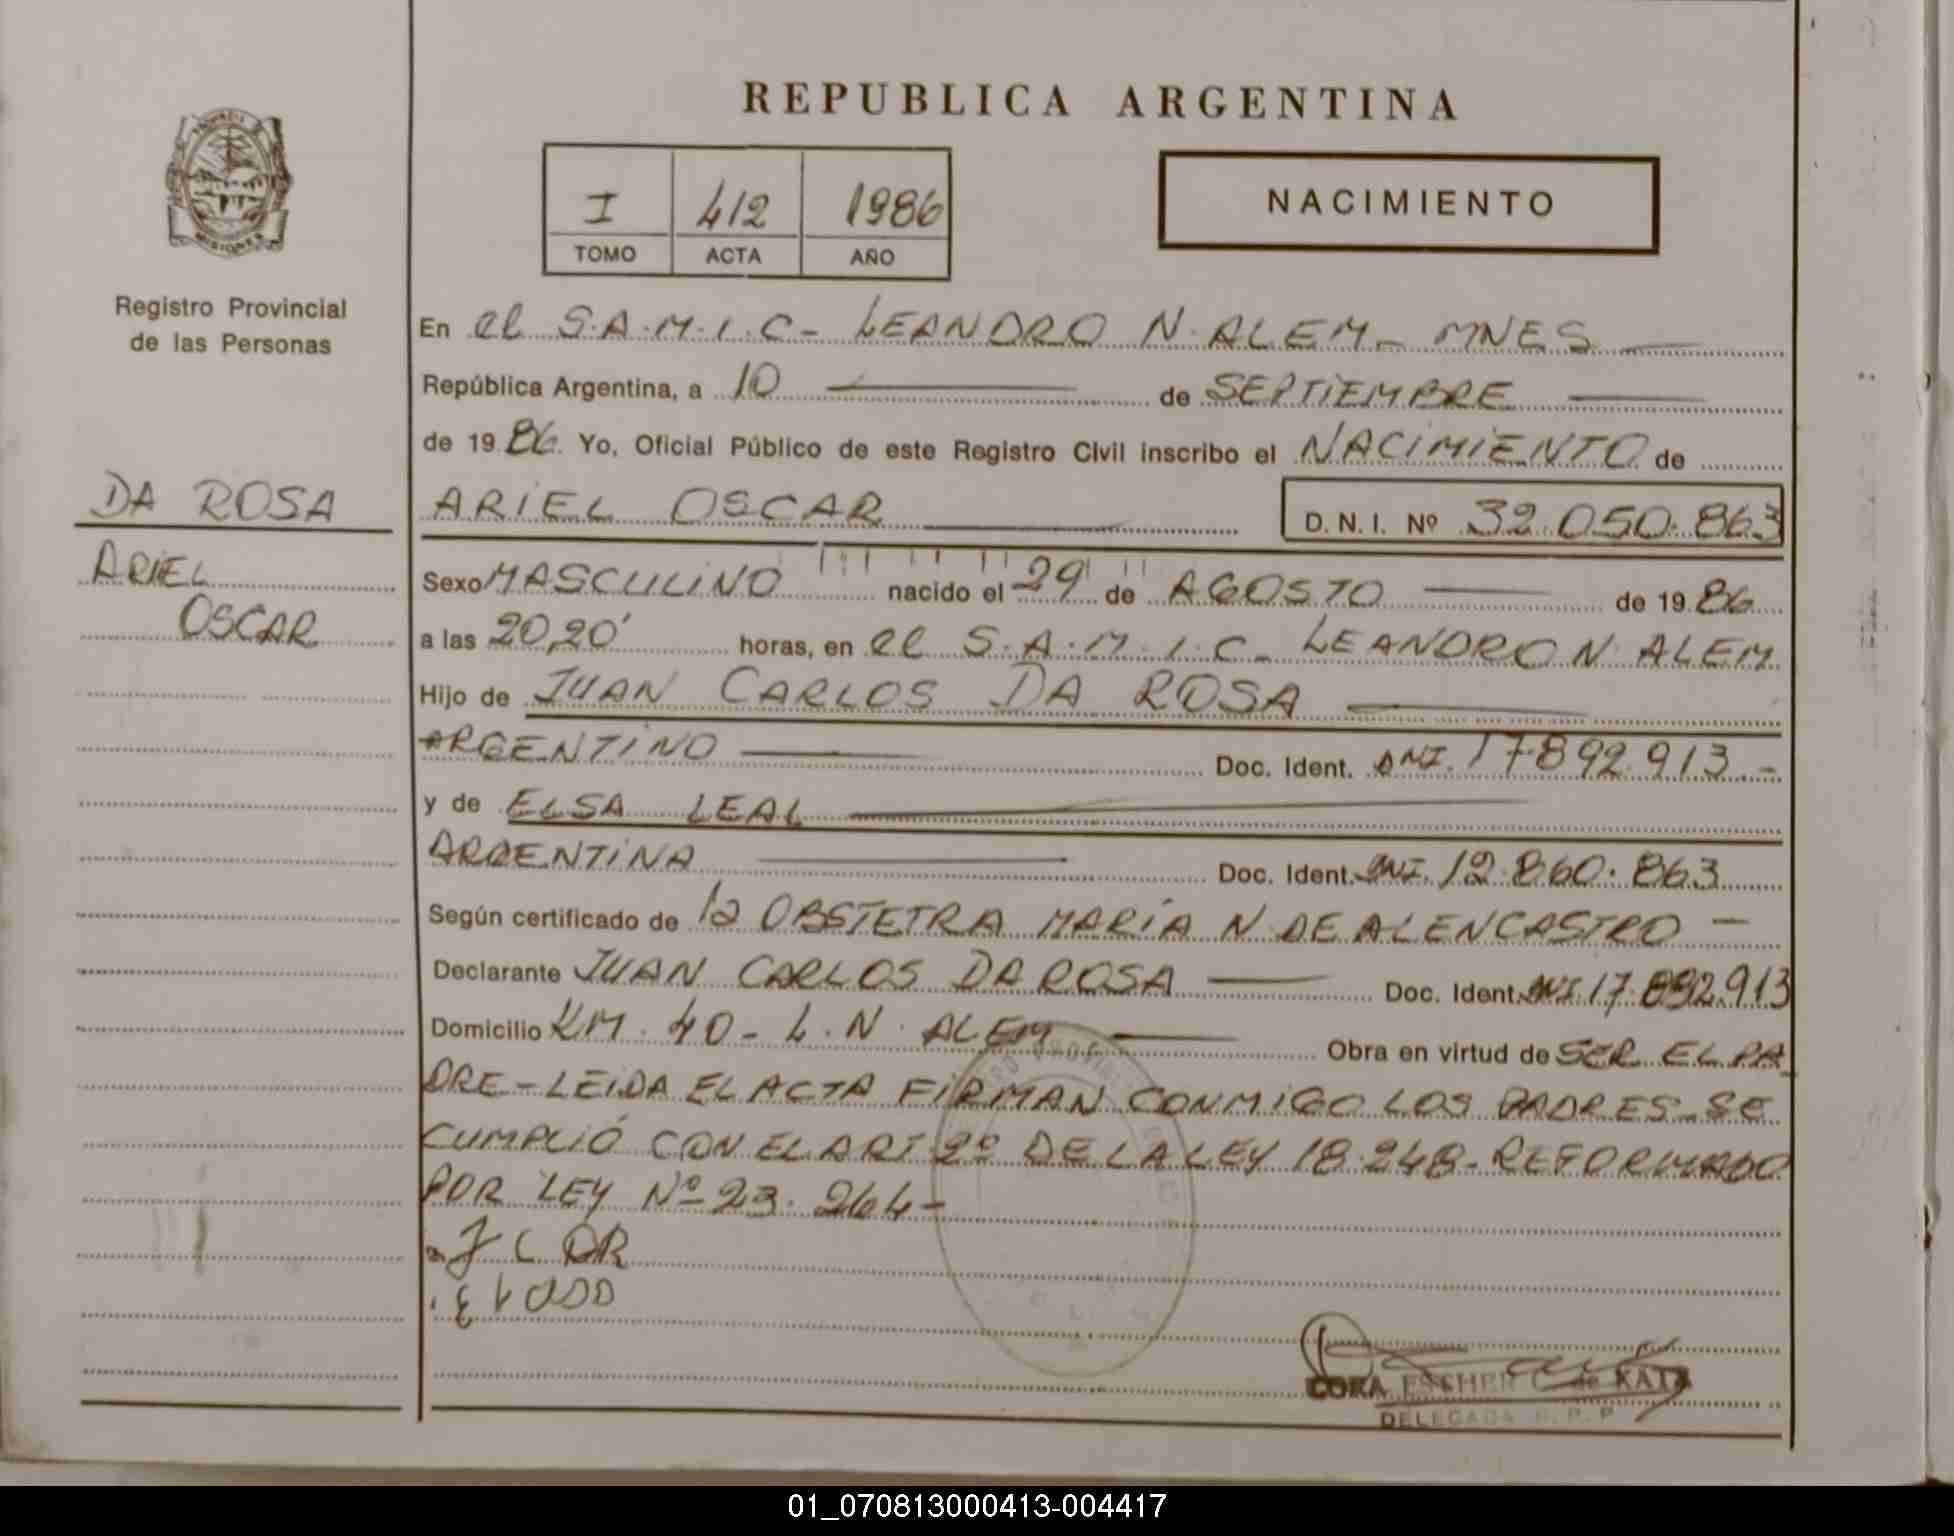 REPUBLICA ARGENTINA
MISIONES
Registro Provincial
de las Personas
I 412 1986
TOMO ACTA AÑO
NACIMIENTO
En el S.A.M.I.C- LEANDRO N. ALEM- MNES
República Argentina, a 10 de SEPTIEMBRE
de 1986. Yo, Oficial Público de este Registro Civil inscribo el NACIMIENTO de
DA ROSA
ARIEL OSCAR
D.N.I. Nº 32.050.863
ARIEL
OSCAR
Sexo MASCULINO nacido el 29 de AGOSTO de 1986
a las 20,20' horas, en el S.A.M.I.C- LEANDRO N. ALEM
Hijo de JUAN CARLOS DA ROSA
ARGENTINO Doc. Ident. DNI. 17.892.913-
y de ELSA LEAL
ARGENTINA Doc. Ident. DNI. 12.860.863
Según certificado de la OBSTETRA MARÍA N DE ALENCASTRO-
Declarante JUAN CARLOS DA ROSA Doc. Ident. DNI. 17.892.913
Domicilio KM. 40- L.N. ALEM Obra en virtud de SER EL PA
DRE- LEIDA EL ACTA FIRMAN CONMIGO LOS PADRES SE
CUMPLIÓ CON EL ART 2º DE LA LEY 18.248- REFORMADO
POR LEY Nº 23.264-
J C DR
CORA ESTHER C de KATZ
DELEGADA R.P.P
01_070813000413-004417